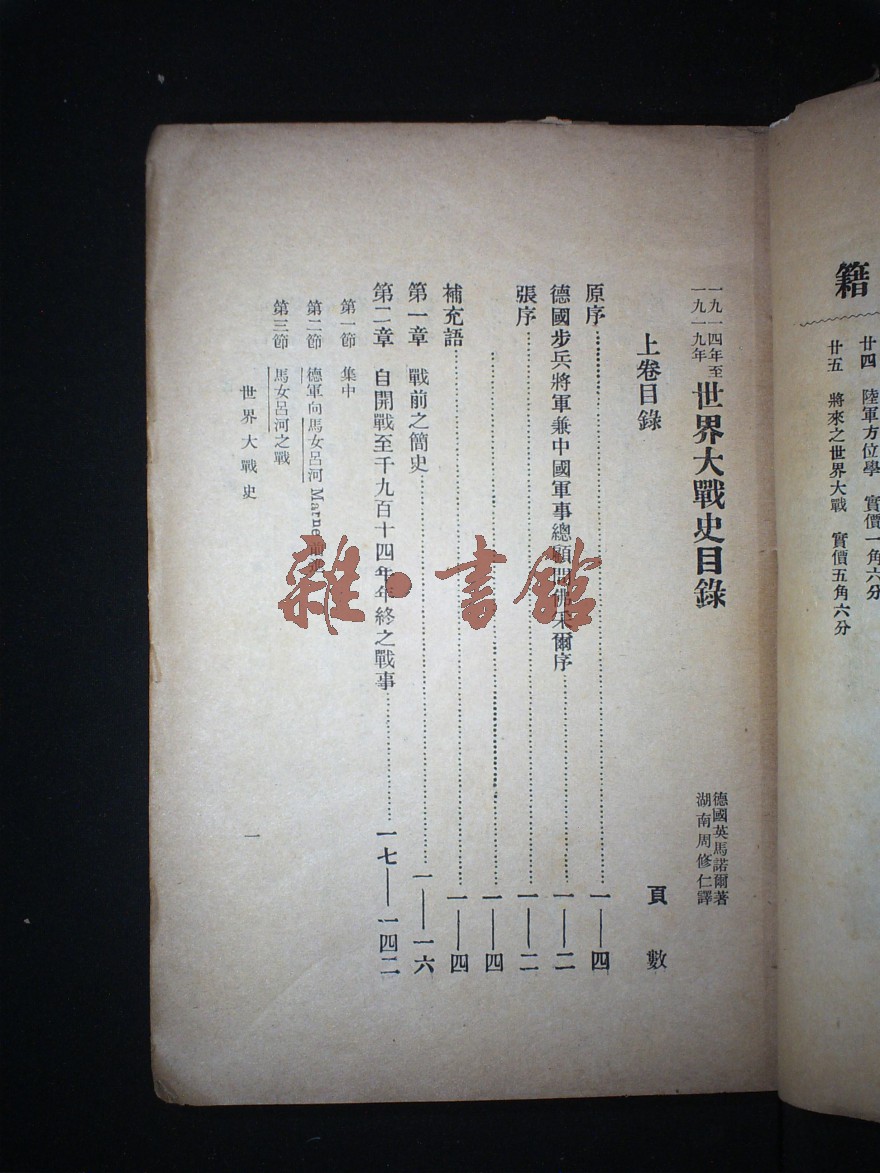 籍
廿四 陸軍方位學 實價一角六分
廿五 將來之世界大戰 實價五角六分
一九一四年至
一九一九年
世界大戰史目錄
德國英馬諾爾著
湖南周修仁譯
上卷目錄
頁數
原序 一——四
德國步兵將軍兼中國軍事總顧問佛采爾序 一——二
張序 一——二
一——四
補充語 一——四
第一章 戰前之簡史 一——一六
第二章 自開戰至千九百十四年年終之戰事 一七——一四二
第一節 集中
第二節 德軍向馬女呂河Marne前進
第三節 馬女呂河之戰
世界大戰史
一
雜·書館